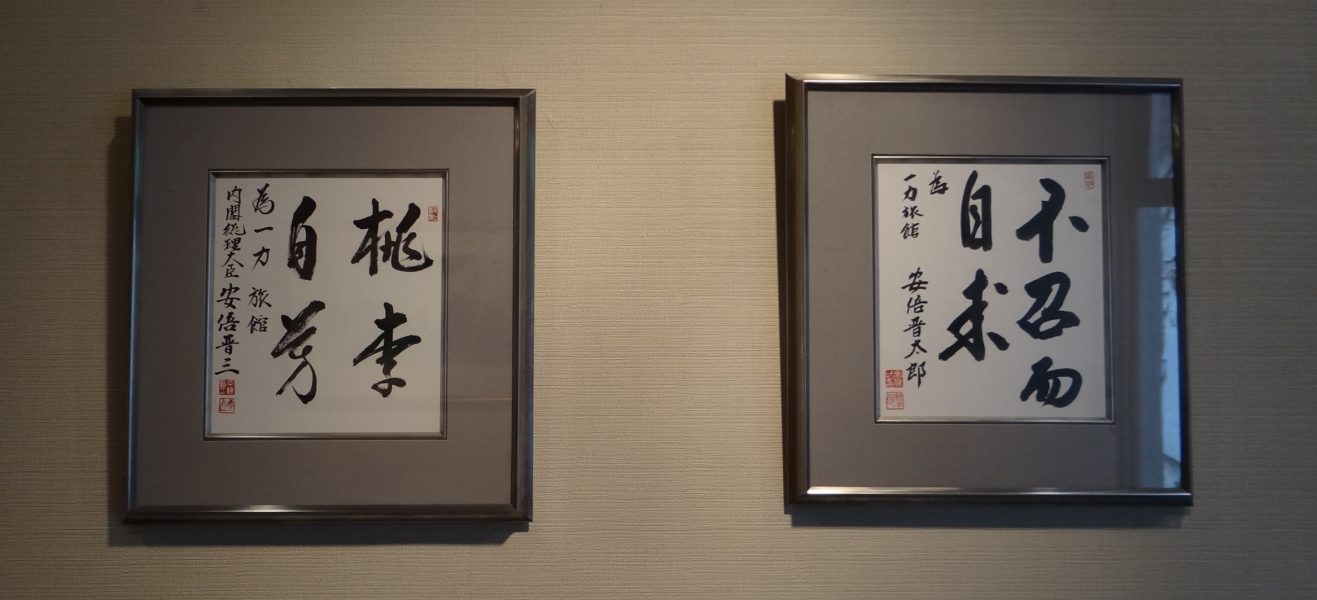 桃李
自芳
為一力旅館
内閣総理大臣 安倍晋三
不召而
自来
為
一力旅館 安倍晋太郎